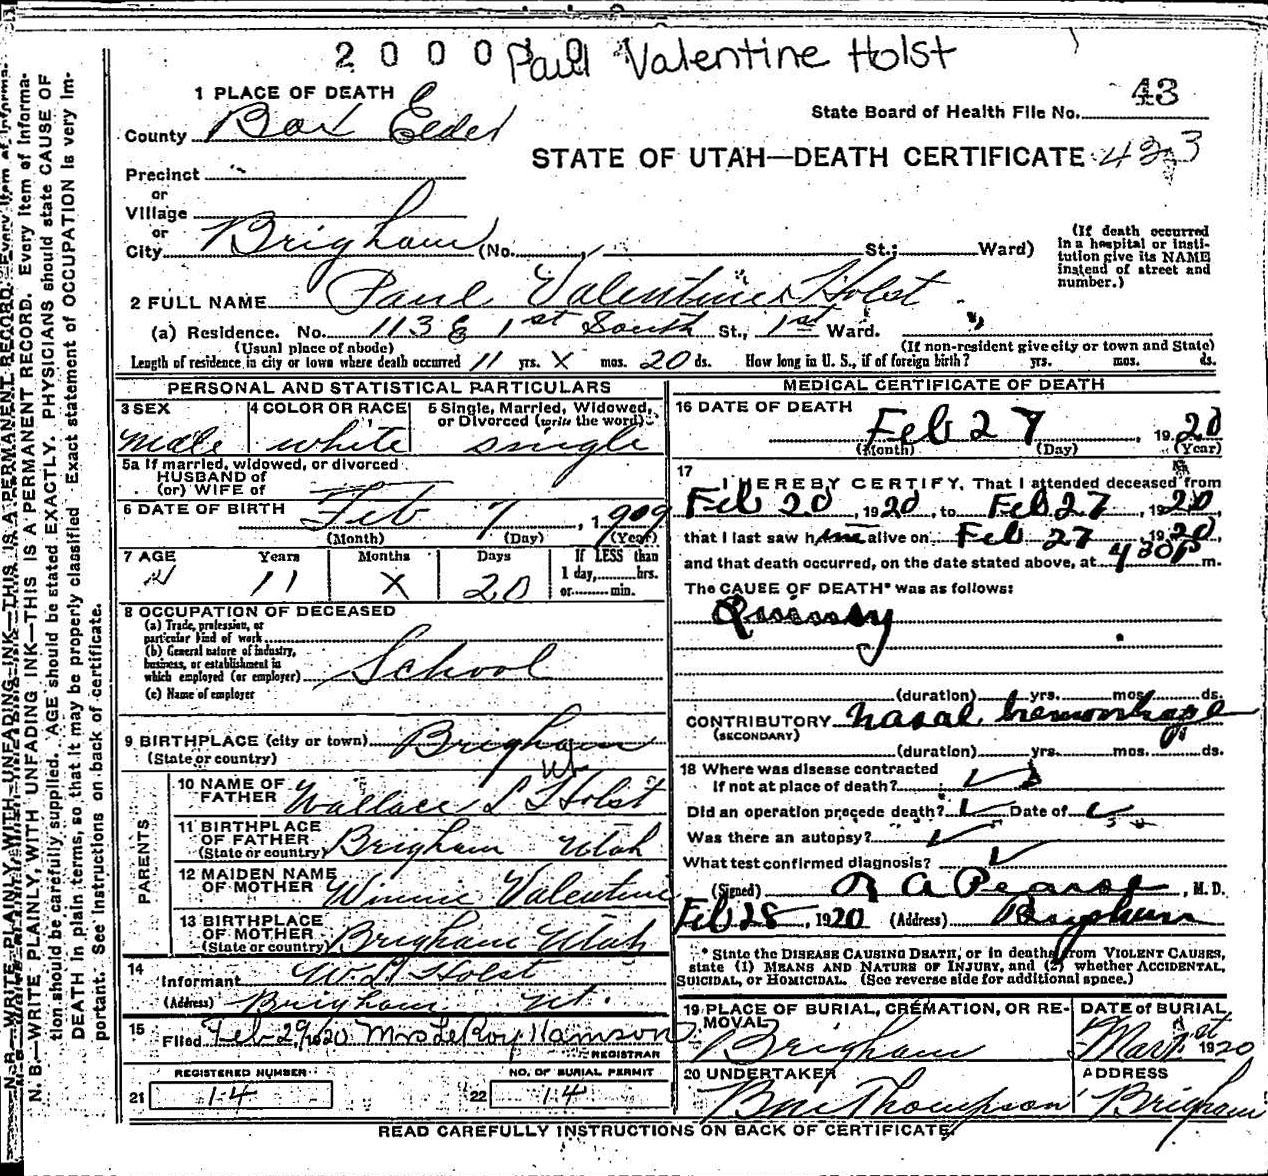 2000 Paul Valentine Holst
43
1 PLACE OF DEATH
State Board of Health File No.
County Box Elder
STATE OF UTAH—DEATH CERTIFICATE
Precinct
or
Village
or
City Brigham (No. St.; Ward)
(If death occurred
in a hospital or insti-
tution give its NAME
instead of street and
number.)
2 FULL NAME Paul Valentine Holst
(a) Residence. No. 113 E 1st South St., 1st Ward.
(Usual place of abode)
(If non-resident give city or town and State)
Length of residence in city or town where death occurred 11 yrs. X mos. 20 ds. How long in U. S., if of foreign birth? yrs. mos. ds.
PERSONAL AND STATISTICAL PARTICULARS
3 SEX
male
4 COLOR OR RACE
white
5 Single, Married, Widowed,
or Divorced (write the word)
single
5a If married, widowed, or divorced
HUSBAND of
(or) WIFE of
6 DATE OF BIRTH Feb 7, 1909
(Month) (Day) (Year)
7 AGE Years Months Days If LESS than
11 X 20 1 day, hrs.
or min.
8 OCCUPATION OF DECEASED
(a) Trade, profession, or
particular kind of work
(b) General nature of industry,
business, or establishment in
which employed (or employer) School
(c) Name of employer
9 BIRTHPLACE (city or town) Brigham
(State or country) Ut
PARENTS
10 NAME OF
FATHER Wallace L Holst
11 BIRTHPLACE
OF FATHER
(State or country) Brigham Utah
12 MAIDEN NAME
OF MOTHER Winnie Valentine
13 BIRTHPLACE
OF MOTHER
(State or country) Brigham Utah
14
Informant W L Holst
(Address) Brigham Ut.
15
Filed Feb 29, 1920 Mrs LeRoy Hamson
REGISTRAR
REGISTERED NUMBER
21 14
NO. OF BURIAL PERMIT
22 14
MEDICAL CERTIFICATE OF DEATH
16 DATE OF DEATH
Feb 27, 1920
(Month) (Day) (Year)
17
I HEREBY CERTIFY, That I attended deceased from
Feb 20, 1920, to Feb 27, 1920,
that I last saw him alive on Feb 27, 1920,
and that death occurred, on the date stated above, at 430 P m.
The CAUSE OF DEATH* was as follows:
Quinsy
(duration) yrs. mos. ds.
CONTRIBUTORY Nasal hemorrhage
(SECONDARY)
(duration) yrs. mos. ds.
18 Where was disease contracted
If not at place of death?
Did an operation precede death? Date of
Was there an autopsy?
What test confirmed diagnosis?
(Signed) R A Pearse, M. D.
Feb 28, 1920 (Address) Brigham
* State the DISEASE CAUSING DEATH, or in deaths from VIOLENT CAUSES,
state (1) MEANS AND NATURE OF INJURY, and (2) whether ACCIDENTAL,
SUICIDAL, or HOMICIDAL. (See reverse side for additional space.)
19 PLACE OF BURIAL, CREMATION, OR RE-
MOVAL
Brigham
DATE OF BURIAL
Mar 1st 1920
20 UNDERTAKER
Thompson
ADDRESS
Brigham
READ CAREFULLY INSTRUCTIONS ON BACK OF CERTIFICATE.
N. B.—WRITE PLAINLY, WITH UNFADING INK—THIS IS A PERMANENT RECORD. Every item of informa-
tion should be carefully supplied. AGE should be stated EXACTLY. PHYSICIANS should state CAUSE OF
DEATH in plain terms, so that it may be properly classified Exact statement of OCCUPATION is very im-
portant. See instructions on back of certificate.